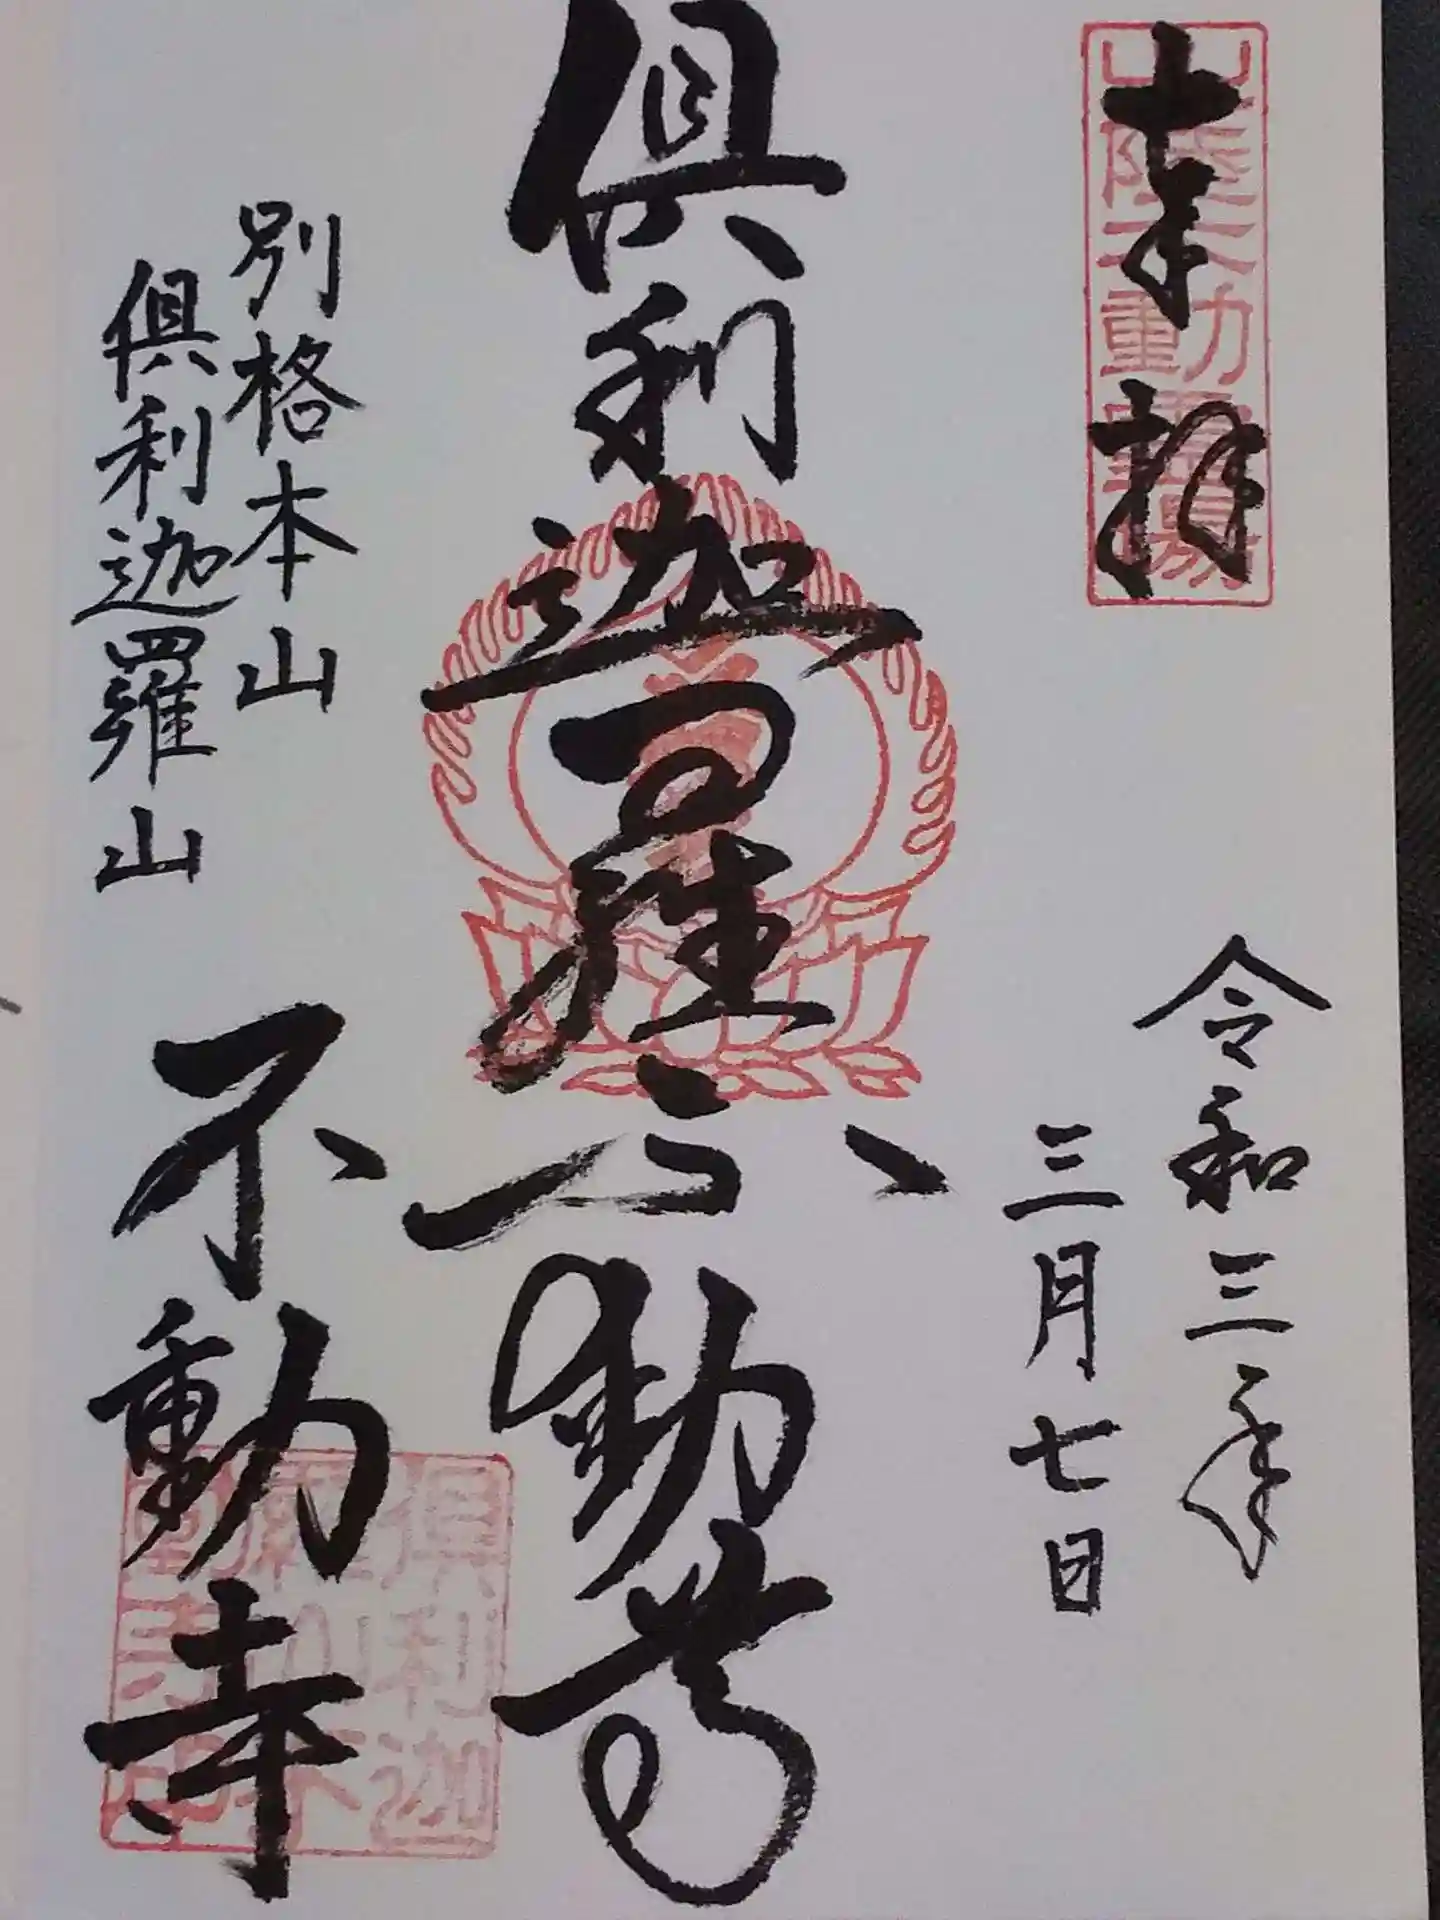 奉拝
山陸不動霊場
令和三年
三月七日
俱利迦羅不動尊
別格本山
俱利迦羅山
不動寺
俱利迦
羅山不
動寺印